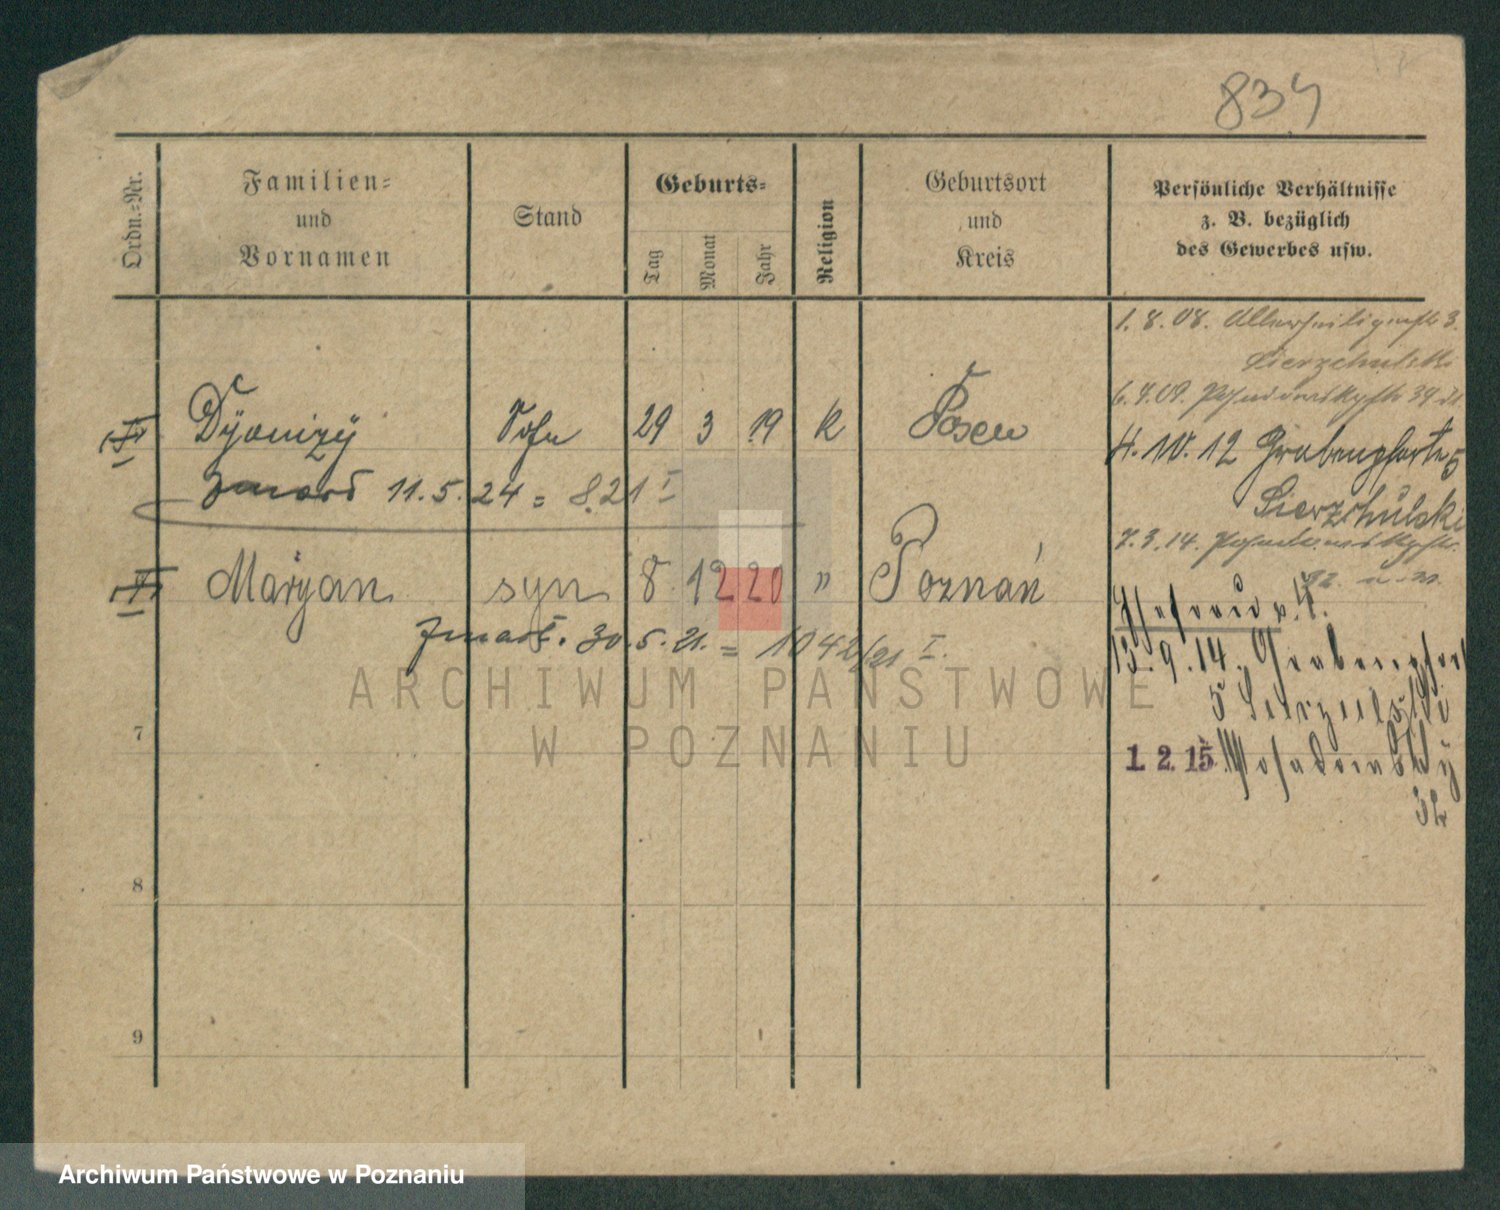 834
Ordn.-Nr.
Familien-
und
Vornamen
Stand
Geburts-
Tag
Monat
Jahr
Religion
Geburtsort
und
Kreis
Persönliche Verhältnisse
z. B. bezüglich
des Gewerbes usw.
1. 8. 08. Allerheiligenstr 3.
Sierzchulski
6. 7. 09. 39
Dyonizy Sohn 29 3 19 k Posen
4. 10. 12 Grabenpforte 5
zmarł 11. 5. 24 = 821 I
Sierzchulski
7. 3. 14.
Maryan syn 8 12 20 " Poznań
zmarł. 30. 5. 21. = 1042/21 I.
13. 9. 14. Grabenpfort
5
1. 2. 15
7
8
9
ARCHIWUM PAŃSTWOWE
W POZNANIU
Archiwum Państwowe w Poznaniu